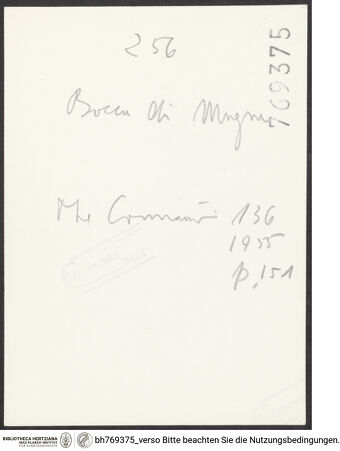 256
769375
Bocca di Magra
The Connaiss 136
1955
p. 151
BIBLIOTHECA HERTZIANA
MAX-PLANCK-INSTITUT
FÜR KUNSTGESCHICHTE
bh769375_verso Bitte beachten Sie die Nutzungsbedingungen.